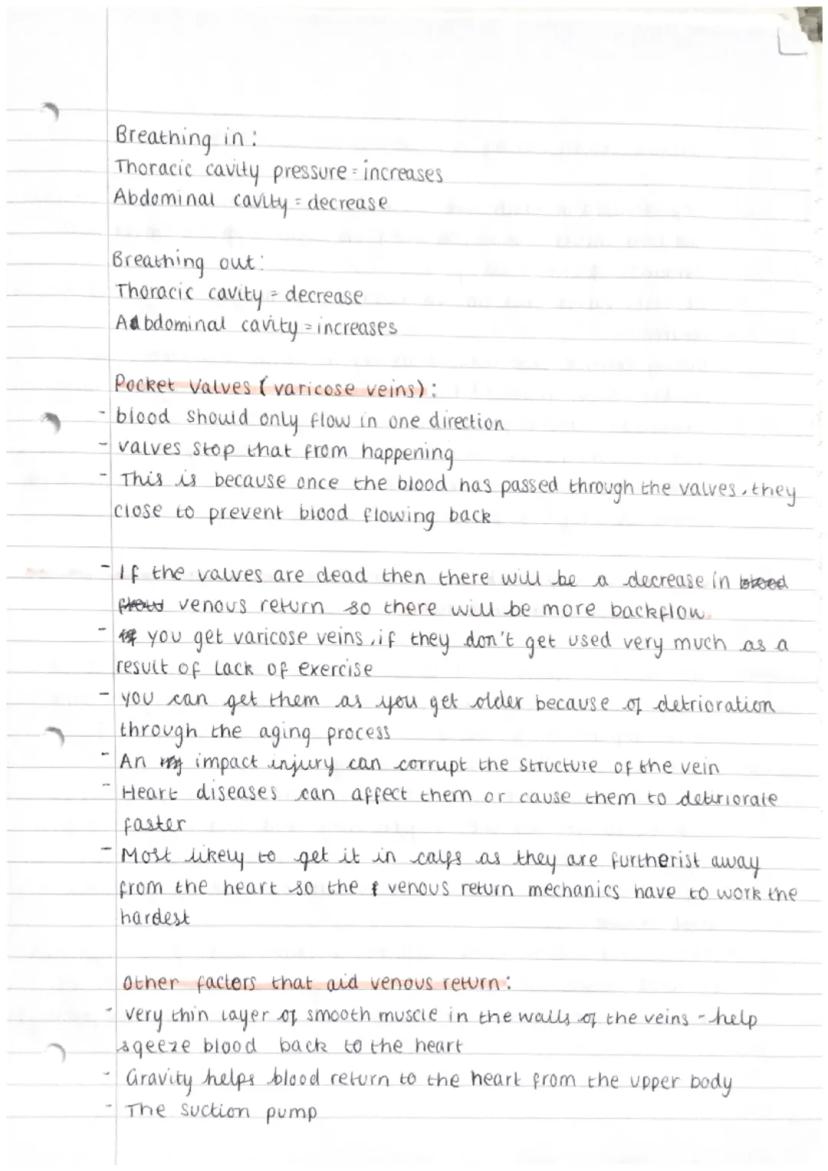 Breathing in:
Thoracic cavity pressure = increases
Abdominal cavity = decrease
Breathing out:
Thoracic cavity = decrease
Abdominal cavity = increases
Pocket Valves (varicose veins):
- blood should only flow in one direction
- valves stop that from happening
- This is because once the blood has passed through the valves, they
close to prevent blood flowing back
- If the valves are dead then there will be a decrease in blood
flow venous return so there will be more backflow.
- If you get varicose veins, if they don't get used very much as a
result of lack of exercise
- you can get them as you get older because of detrioration
through the aging process
- An impact injury can corrupt the structure of the vein
- Heart diseases can affect them or cause them to deteriorate
faster
- Most likely to get it in calfs as they are furtherist away
from the heart so the venous return mechanics have to work the
hardest
Other factors that aid venous return:
- very thin layer of smooth muscle in the walls of the veins - help
sqeeze blood back to the heart
- Gravity helps blood return to the heart from the upper body
- The suction pump